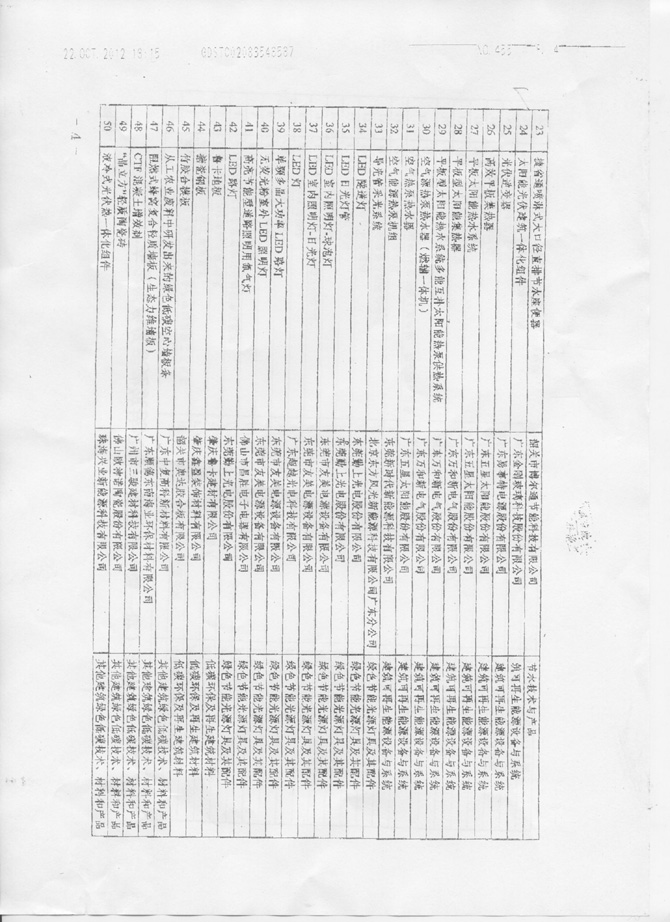 22 OCT 2012 18:15 GDSTC02083549587 NO.455 P. 4
23 捷省福喷淋式大口径直排节水座便器 韶关市博尔通节能科技有限公司 节水技术与产品
24 太阳能光伏建筑一体化组件 广东金刚玻璃科技股份有限公司 建筑可再生能源设备与系统
25 光伏逆变器 广东易事特电源股份有限公司 建筑可再生能源设备与系统
26 高效平板集热器 广东五星太阳能股份有限公司 建筑可再生能源设备与系统
27 平板太阳能热水系统 广东五星太阳能股份有限公司 建筑可再生能源设备与系统
28 平板型太阳能集热器 广东万和新电气股份有限公司 建筑可再生能源设备与系统
29 平板型太阳能热水系统多能互补太阳能热泵供热系统 广东万和新电气股份有限公司 建筑可再生能源设备与系统
30 空气源热泵热水器（嵌辅一体机） 广东万和新电气股份有限公司 建筑可再生能源设备与系统
31 空气能热水器 广东五星太阳能股份有限公司 建筑可再生能源设备与系统
32 空气能源热泵机组 东莞新时代新能源科技有限公司 建筑可再生能源设备与系统
33 导光管采光系统 北京东方风光新能源科技有限公司广东分公司 绿色节能光源灯具及其配件
34 LED 隧道灯 东莞勤上光电股份有限公司 绿色节能光源灯具及其配件
35 LED 日光灯管 东莞勤上光电股份有限公司 绿色节能光源灯具及其配件
36 LED 室内照明灯-球泡灯 东莞市友美电源设备有限公司 绿色节能光源灯具及其配件
37 LED 室内照明灯-日光灯 东莞市友美电源设备有限公司 绿色节能光源灯具及其配件
38 LED 灯 广东超越光电科技有限公司 绿色节能光源灯具及其配件
39 单颗多晶大功率 LED 路灯 东莞市友美电源设备有限公司 绿色节能光源灯具及其配件
40 无荧光粉室外 LED 照明灯 东莞市友美电源设备有限公司 绿色节能光源灯具及其配件
41 高光节能型道路照明用氙气灯 佛山市昌胜电子电器有限公司 绿色节能光源灯具及其配件
42 LED 路灯 东莞勤上光电股份有限公司 绿色节能光源灯具及其配件
43 鲁卡地板 肇庆鲁卡建材有限公司 低碳环保及再生建筑材料
44 搪瓷钢板 肇庆鑫盈装饰材料有限公司 低碳环保及再生建筑材料
45 竹胶合模板 韶关市奥达胶合板有限公司 低碳环保及再生建筑材料
46 从工农业废料中研发出来的绿色低碳空心墙板条 广东中奥斯科新材料有限公司 其他建筑绿色低碳技术、材料和产品
47 阻燃式蜂窝复合轻质墙板（生态力维墙板） 广东顺德东南海业环保材料有限公司 其他建筑绿色低碳技术、材料和产品
48 CTF 混凝土增效剂 广州市三骏建材科技有限公司 其他建筑绿色低碳技术、材料和产品
49 “晶立方”轻质陶瓷砖 佛山欧神诺陶瓷股份有限公司 其他建筑绿色低碳技术、材料和产品
50 液冷式光伏热一体化组件 珠海兴业新能源科技有限公司 其他建筑绿色低碳技术、材料和产品
- 4 -